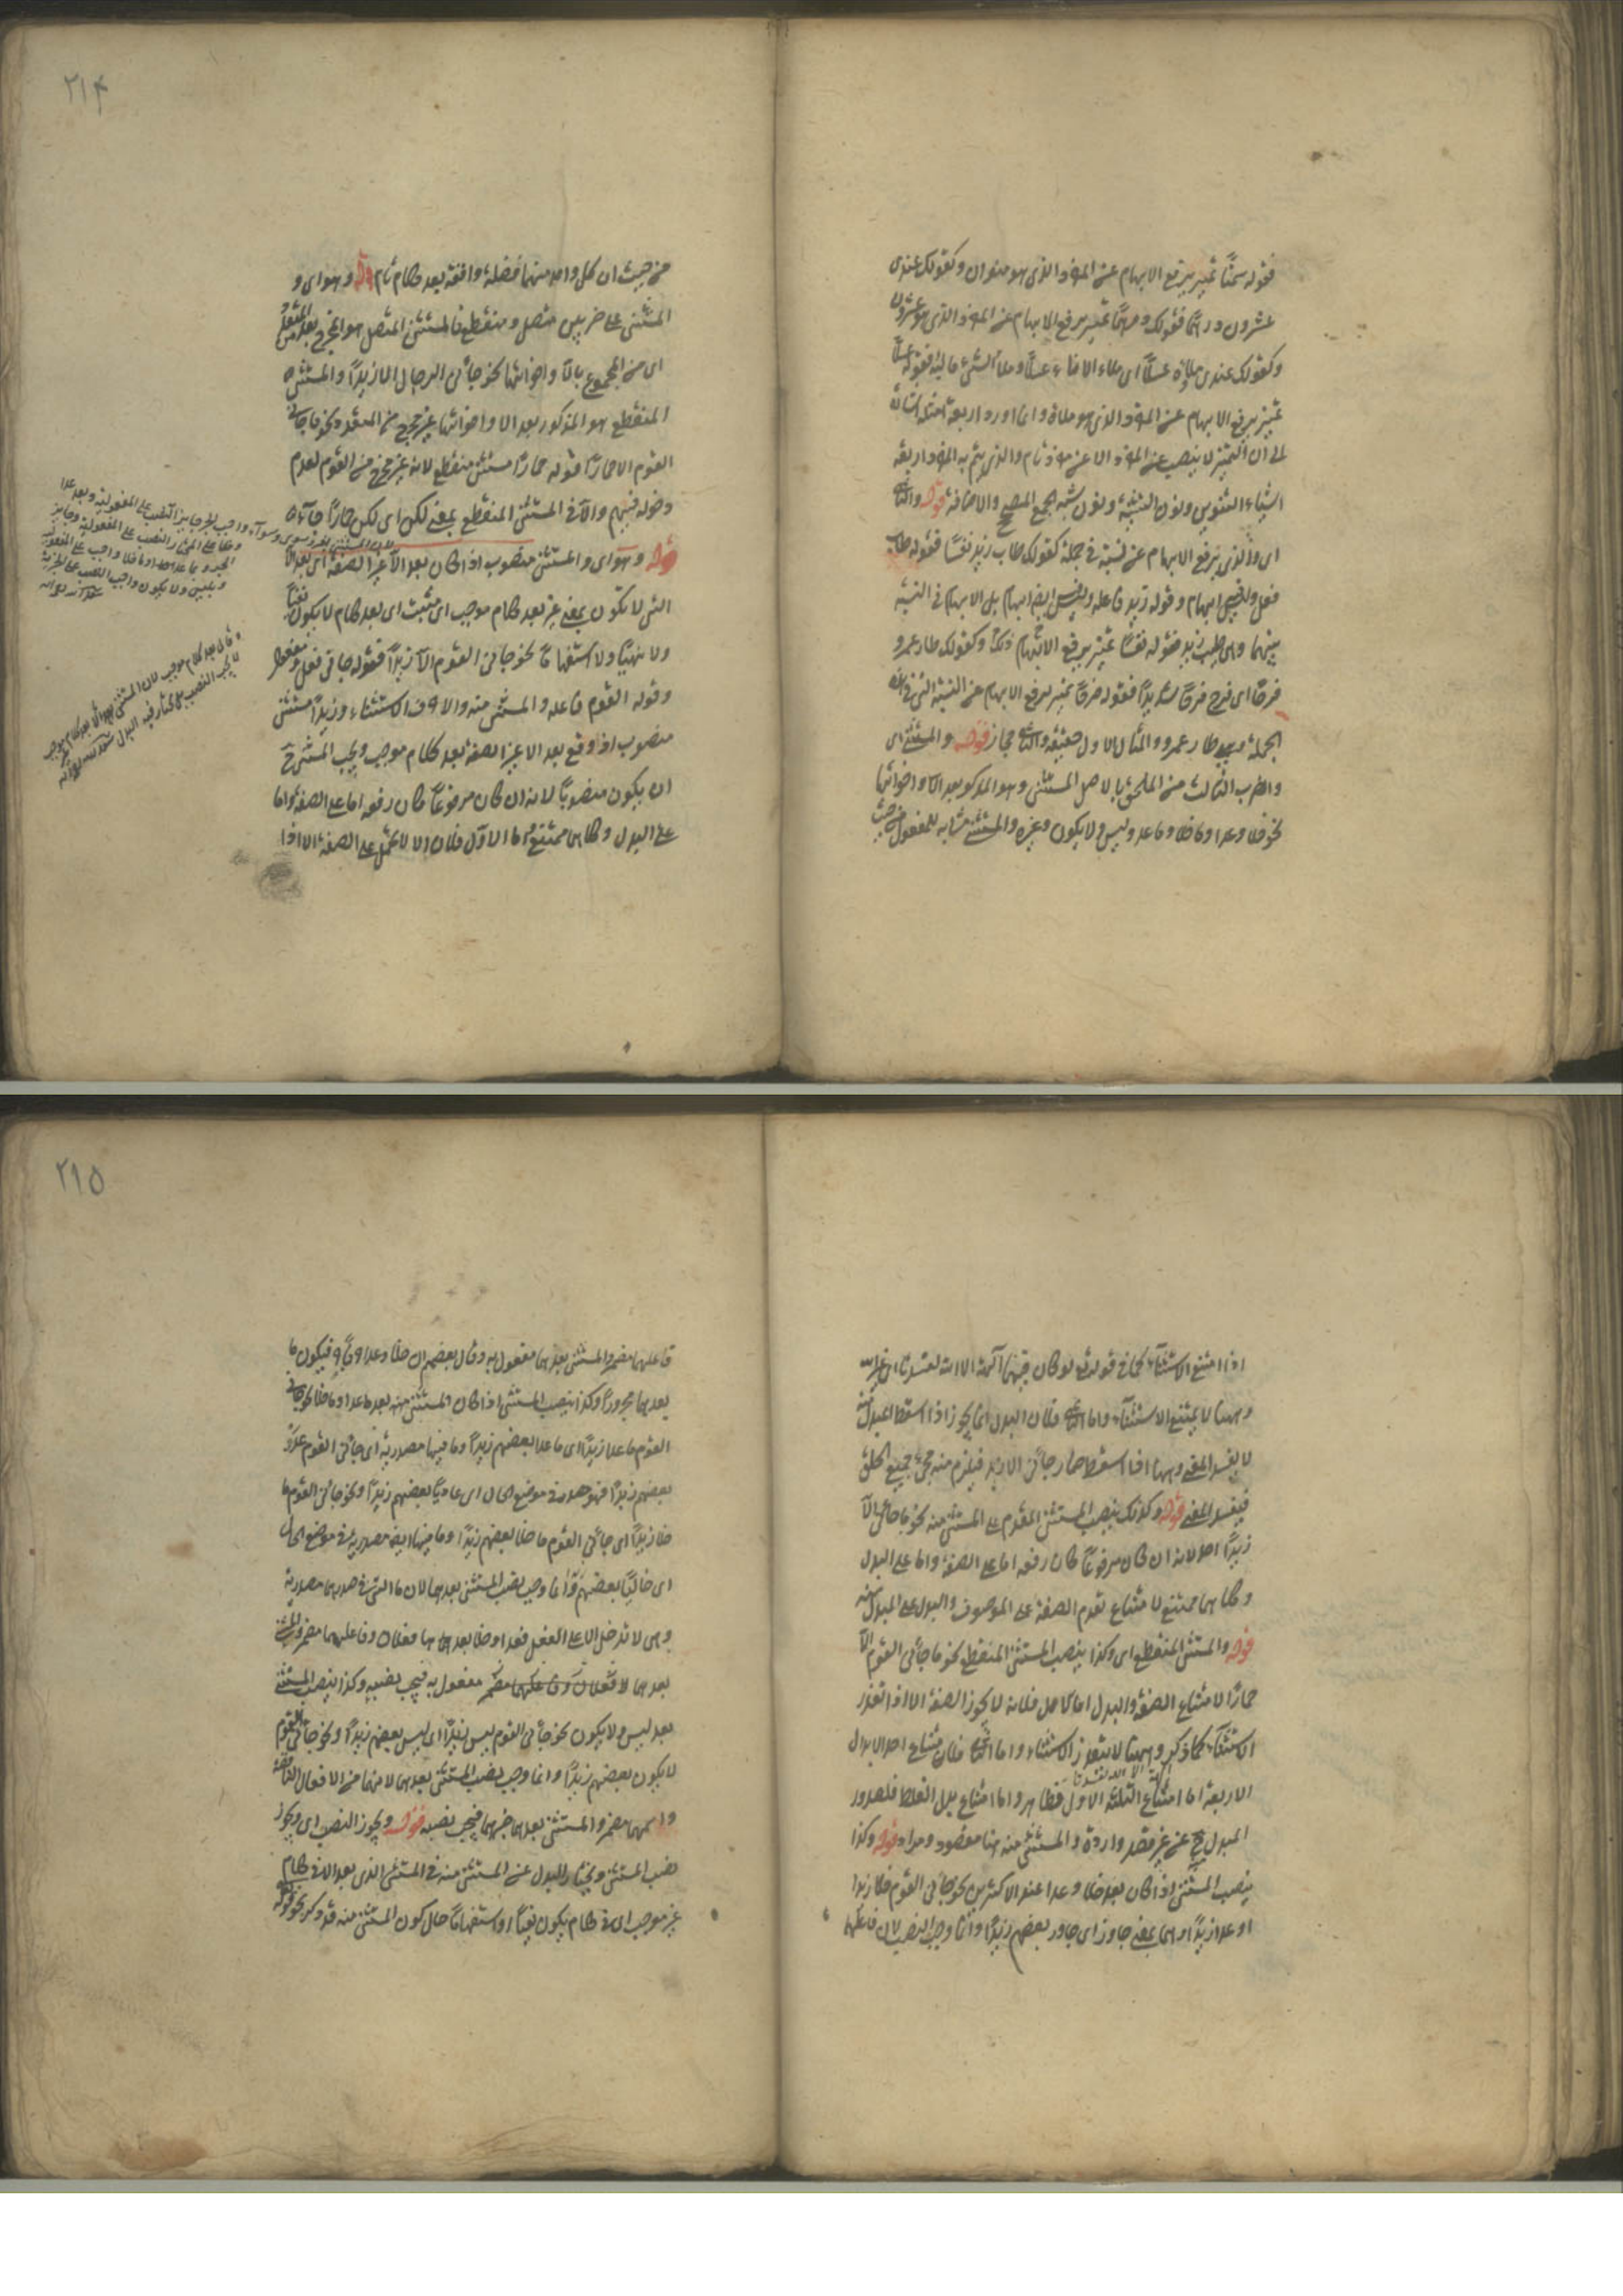 فقوله سمنًا تمييز يرفع الابهام عن المفرد الذى هو منوان وكقولك عندى
عشرون درهمًا فقولك درهمًا تمييز يرفع الابهام عن المفرد الذى هو عشرون
وكقولك عندى ملاؤه عسلًا اى ملاء الاناء عسلًا وملأ الشئ ما ليه فقوله عسلًا
تمييز يرفع الابهام عن المفرد الذى هو ملاؤه وانما اورد اربعة امثلة اشارة
الى ان التمييز لا ينصب عن المفرد الا عن مفرد تام والذى يتم به المفرد اربعة
اشياء التنوين ونون التثنية ونون شبه الجمع والاضافة قوله والثانى
اى والذى يرفع الابهام عن نسبة فى جملة كقولك طاب زيد نفسًا فقوله طاب
فعل وليس ابهام وقوله زيد فاعله وليس ايضا ابهام بل الابهام فى النسبة
بينهما وهى طيب زيد فقوله نفسًا تمييز يرفع الابهام ذلك وكقولك طار عمرو
فرقًا اى فرح فرقًا شديدًا فقوله فرقًا تمييز يرفع الابهام عن النسبة التى فى هذه
الجملة وهى طار عمرو والمثال الاول حقيقة والثانى مجاز قوله والمستثنى اى
والضرب الثالث من الملحق بالاصل المستثنى وهو المذكور بعد الا واخواتها
نحو خلا وعدا وما خلا وما عدا وليس ولا يكون وغيره والمستثنى مشابه للمفعول من حيث
٢١٤
من حيث ان كل واحد منهما فضلة واقعة بعد كلام تام قوله وهو اى و
المستثنى على ضربين متصل ومنقطع فالمستثنى المتصل هو المخرج من المتعدد
اى من المجموع بالا واخواتها نحو جاءنى الرجال الا زيدًا والمستثنى
المنقطع هو المذكور بعد الا واخواتها غير مخرج من المتعدد نحو ما جاءنى
القوم الا حمارًا فقوله حمارًا مستثنى منقطع لانه غير مخرج من القوم لعدم
دخوله فيهم والا فى المستثنى المنقطع بمعنى لكن اى لكن حمارًا جاء
قوله وهو اى والمستثنى منصوب اذا كان بعد الا غير الصفة اى بعد الا
التى لا تكون بمعنى غير بعد كلام موجب اى مثبت اى بعد كلام لا يكون نفيًا
ولا نهيًا ولا استفهامًا نحو جاءنى القوم الا زيدًا فقوله جاءنى فعل ومفعول
وقوله القوم فاعله والمستثنى منه والا حرف الاستثناء وزيدًا مستثنى
منصوب اذ وقع بعد الا غير الصفة بعد كلام موجب ويجب المستثنى ح
ان يكون منصوبًا لانه ان كان مرفوعًا كان رفعه اما على الصفة واما
على البدل وكلاهما ممتنع اما الاول فلان الا لا تحمل على الصفة الا اذا
اذا امتنع الاستثناء كما فى قوله تعالى لو كان فيهما آلهة الا الله لفسدتا اى غير الله
وههنا لا يمتنع الاستثناء واما الثانى فلان البدل انما يجوز اذا اسقط المبدل منه
لا يفسد المعنى وههنا اذا اسقط صار جاءنى الا زيد فيلزم منه مجئ جميع الخلق
فيفسد المعنى قوله وكذلك ينصب المستثنى المقدم على المستثنى منه نحو ما جاءنى الا
زيدًا احد لانه ان كان مرفوعًا كان رفعه اما على الصفة واما على البدل
وكلاهما ممتنع لامتناع تقدم الصفة على الموصوف والبدل على المبدل منه
قوله والمستثنى المنقطع اى وكذا ينصب المستثنى المنقطع نحو ما جاءنى القوم الا
حمارًا لامتناع الصفة والبدل اما الاول فلانه لا يجوز الصفة الا اذا تعذر
الاستثناء كما ذكر وههنا لا يتعذر الاستثناء واما الثانى فلان امتناع احد الابدال
الاربعة اما امتناع الثلثة الاول فظاهر واما امتناع بدل الغلط فلصدور
المبدل ح عن غير قصد وارادة والمستثنى منه هنا مقصود ومراد قوله وكذا
ينصب المستثنى اذا كان بعد خلا وعدا عند الاكثرين نحو جاءنى القوم خلا زيدا
او عدا زيدًا وهما بمعنى جاوز اى جاوز بعضهم زيدًا وانما وجب النصب لان فاعلهما
٢١٥
فاعلهما مضمر والمستثنى بعدهما مفعول به وقال بعضهم ان خلا وعدا حرفا جر فيكون ما
بعدهما مجرورًا وكذا ينصب المستثنى اذا كان المستثنى منه بعد ما عدا وما خلا نحو جاءنى
القوم ما عدا زيدًا اى ما عدا بعضهم زيدًا وما فيهما مصدرية اى جاءنى القوم عدو
بعضهم زيدًا فهو مصدر فى موضع الحال اى عاديًا بعضهم زيدًا ونحو جاءنى القوم ما
خلا زيدًا اى جاءنى القوم ما خلا بعضهم زيدًا وما فيها ايضا مصدرية فى موضع الحال
اى خاليًا بعضهم وانما وجب نصب المستثنى بعدهما لان ما التى فى صدرهما مصدرية
وهى لا تدخل الا على الفعل فعدا وخلا بعدها فعلان وفاعلهما مضمر والمستثنى
بعدهما مفعول به فيجب نصبه وكذا ينصب المستثنى
بعد ليس ولا يكون نحو جاءنى القوم ليس زيدًا اى ليس بعضهم زيدًا ونحو جاءنى القوم
لا يكون بعضهم زيدًا وانما وجب نصب المستثنى بعدهما لانهما من الافعال الناقصة
واسمهما مضمر والمستثنى بعدهما خبرهما فيجب نصبه قوله ويجوز النصب اى ويجوز
نصب المستثنى ويختار البدل عن المستثنى منه فى المستثنى الذى بعد الا فى كلام
غير موجب اى فى كلام يكون نفيًا او استفهامًا حال كون المستثنى منه قد ذكر نحو قوله